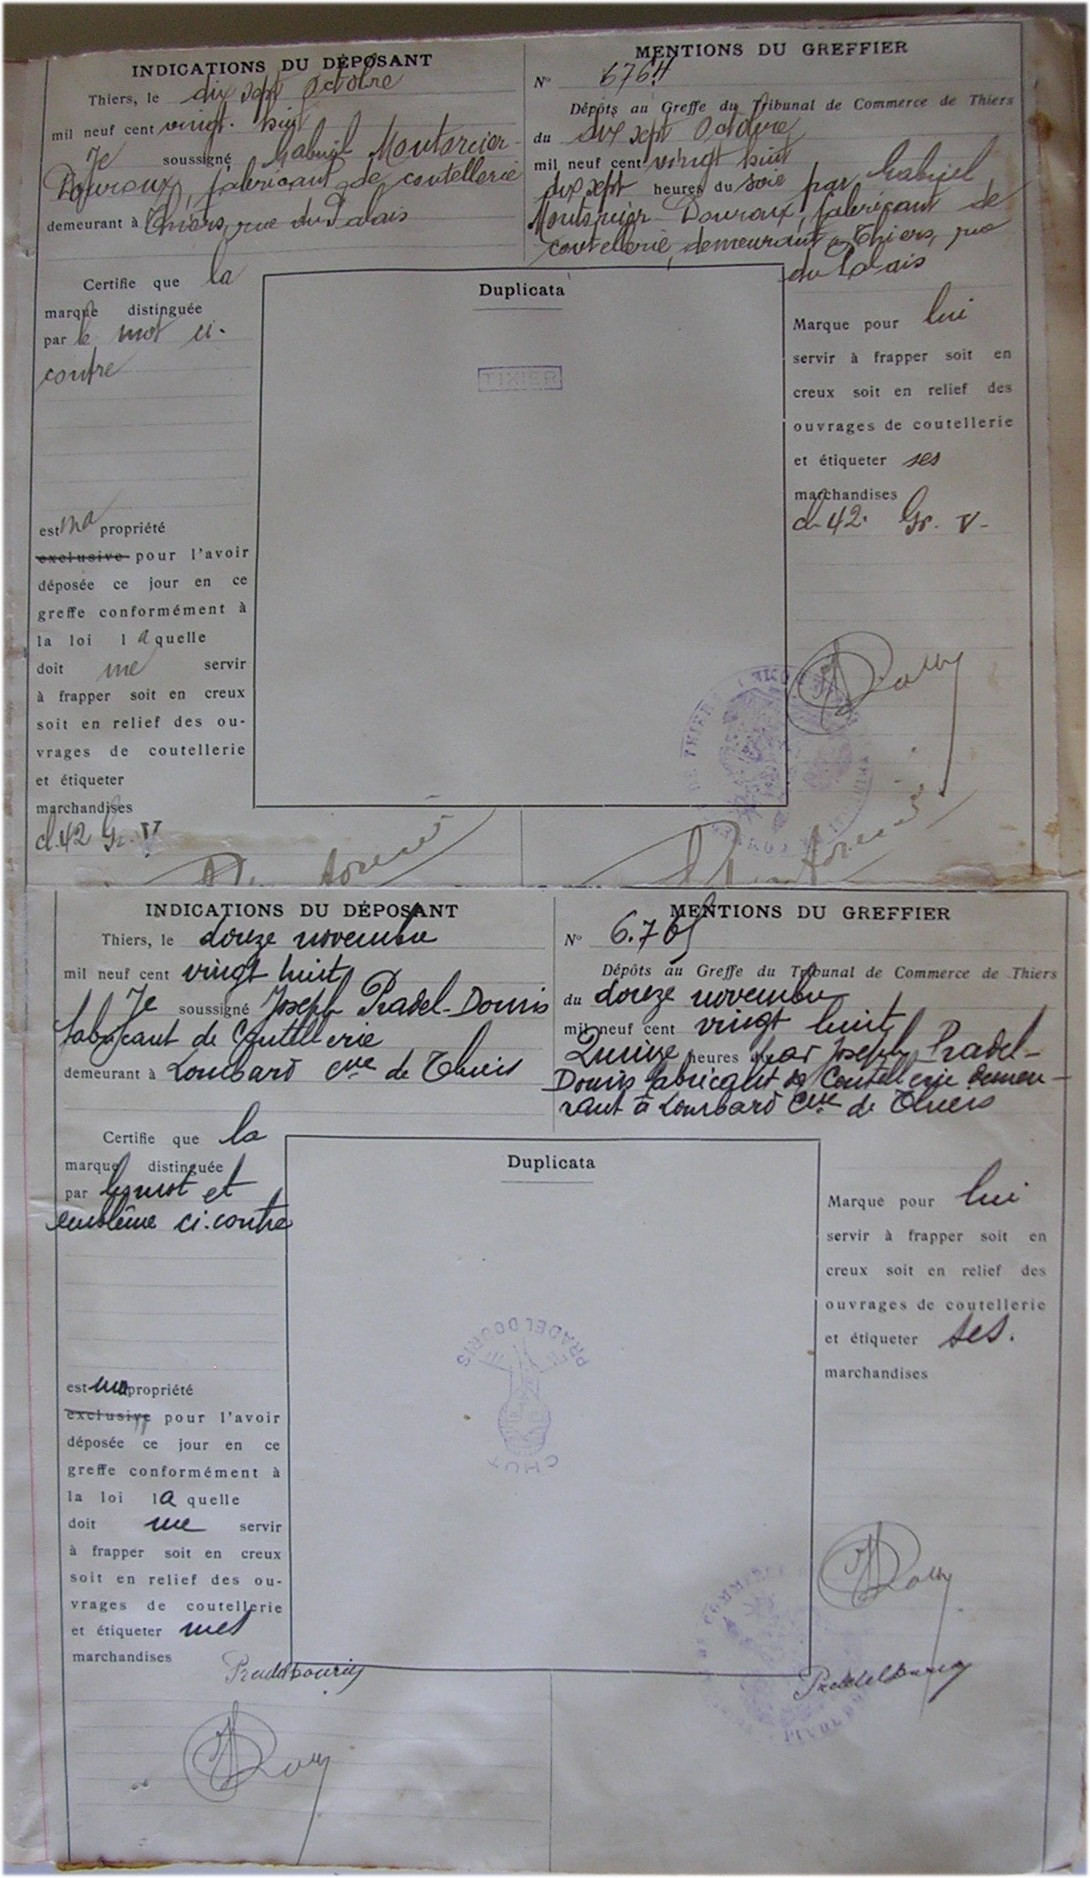 INDICATIONS DU DÉPOSANT
Thiers, le dix sept Octobre
mil neuf cent vingt-huit
Je soussigné Gabriel
Douroux, fabricant de coutellerie
demeurant à Thiers, rue du Palais
Certifie que la
marque distinguée
par le mot ci-
contre
est ma propriété
exclusive pour l'avoir
déposée ce jour en ce
greffe conformément à
la loi laquelle
doit me servir
à frapper soit en creux
soit en relief des ou-
vrages de coutellerie
et étiqueter
marchandises
cl. 42 Gr. V
Duplicata
TIXIER
MENTIONS DU GREFFIER
N° 6764
Dépôts au Greffe du Tribunal de Commerce de Thiers
du dix sept Octobre
mil neuf cent vingt huit
dix sept heures du soir par Gabriel
Douroux, fabricant de
coutellerie, demeurant à Thiers, rue
du Palais
Marque pour lui
servir à frapper soit en
creux soit en relief des
ouvrages de coutellerie
et étiqueter ses
marchandises
cl. 42. Gr. V-
INDICATIONS DU DÉPOSANT
Thiers, le douze novembre
mil neuf cent vingt huit
Je soussigné Joseph Pradel-Douris
fabricant de Coutellerie
demeurant à Lombard Cne de Thiers
Certifie que la
marque distinguée
par le mot et
emblème ci-contre
est ma propriété
exclusive pour l'avoir
déposée ce jour en ce
greffe conformément à
la loi laquelle
doit me servir
à frapper soit en creux
soit en relief des ou-
vrages de coutellerie
et étiqueter mes
marchandises
Pradeldouris
Duplicata
PRADEL DOURIS
CHUT
MENTIONS DU GREFFIER
N° 6.765
Dépôts au Greffe du Tribunal de Commerce de Thiers
du douze novembre
mil neuf cent vingt huit
Quinze heures du par Joseph Pradel-
Douris fabricant de Coutellerie demeu-
rant à Lombard Cne de Thiers
Marque pour lui
servir à frapper soit en
creux soit en relief des
ouvrages de coutellerie
et étiqueter ses.
marchandises
Pradeldouris